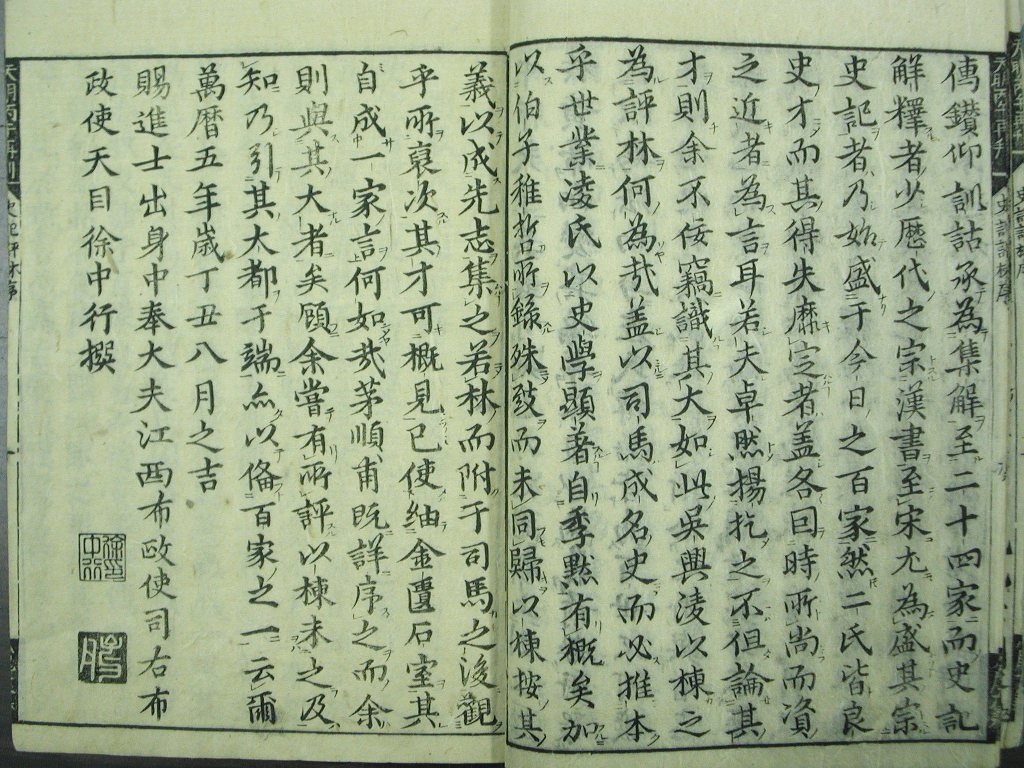 傳鑽仰訓詁承為集解至二十四家而史記
解釋者少歷代之宗漢書至宋尤為盛其宗
史記者乃始盛于今日之百家然二氏皆良
史才而其得失靡定者盖各因時所尚而資
之近者為言耳若夫卓然揚扢之不但論其
才則余不佞竊識其大如此吳興淩以棟之
為評林何為哉盖以司馬成名史而必推本
乎世業凌氏以史學顯著自季默有概矣加
以伯子稚哲所錄殊致而未同歸以棟按其
義以成先志集之若林而附于司馬之後觀
乎所裒次其才可概見已使紬金匱石室其
自成一家言何如哉茅順甫既詳序之而余
則與其大者矣顧余嘗有所評以棟未之及
知乃引其大都于端亦以俻百家之一云爾
萬曆五年歲丁丑八月之吉
賜進士出身中奉大夫江西布政使司右布
政使天目徐中行撰